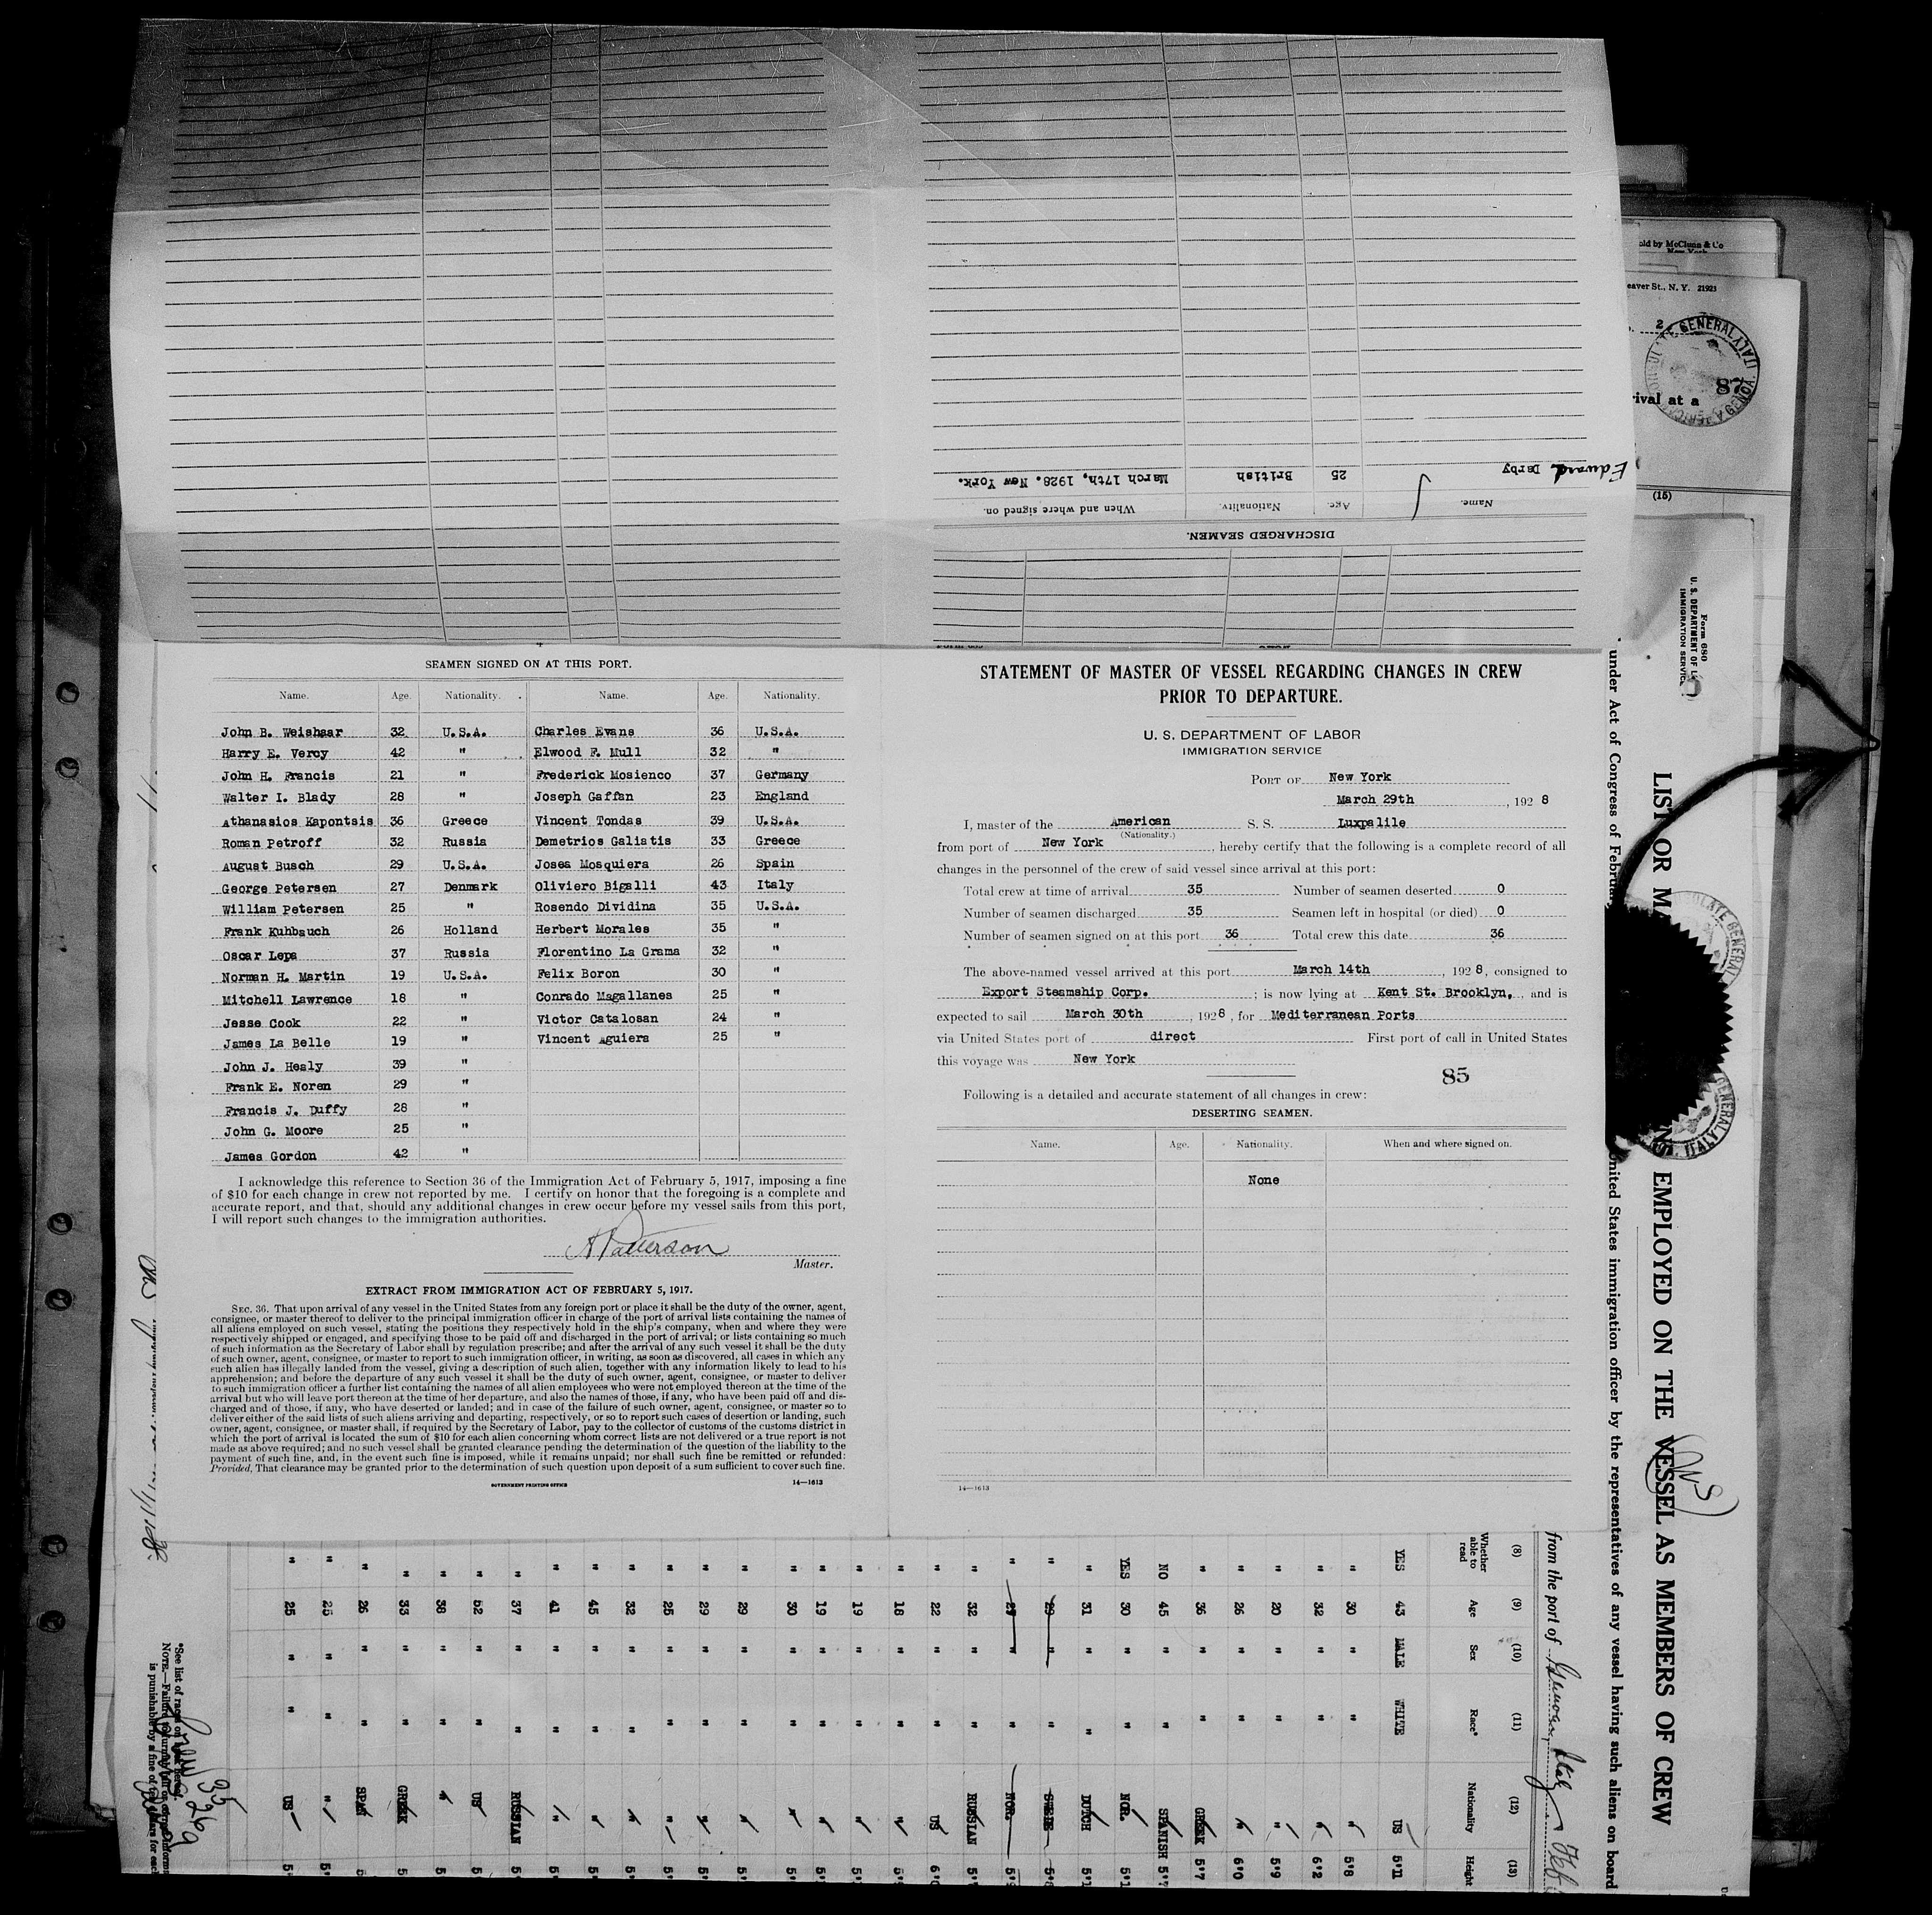 Edward Darby 25 British March 17th, 1928. New York.
Name. Age. Nationality. When and where signed on.
DISCHARGED SEAMEN.
SEAMEN SIGNED ON AT THIS PORT.
Name. Age. Nationality. Name. Age. Nationality.
John B. Weishaar 32 U.S.A. Charles Evans 36 U.S.A.
Harry E. Veroy 42 " Elwood F. Mull 32 "
John H. Francis 21 " Frederick Mosienco 37 Germany
Walter I. Blady 28 " Joseph Gaffan 23 England
Athanasios Kapontsis 36 Greece Vincent Tondas 39 U.S.A.
Roman Petroff 32 Russia Demetrios Galiatis 33 Greece
August Busch 29 U.S.A. Josea Mosquiera 26 Spain
George Petersen 27 Denmark Oliviero Bigalli 43 Italy
William Petersen 25 " Rosendo Dividina 35 U.S.A.
Frank Kuhbauch 26 Holland Herbert Morales 35 "
Oscar Leps 37 Russia Florentino La Grama 32 "
Norman H. Martin 19 U.S.A. Felix Boron 30 "
Mitchell Lawrence 18 " Conrado Magallanes 25 "
Jesse Cook 22 " Victor Catalosan 24 "
James La Belle 19 " Vincent Aguiera 25 "
John J. Healy 39 "
Frank E. Noren 29 "
Francis J. Duffy 28 "
John G. Moore 25 "
James Gordon 42 "
I acknowledge this reference to Section 36 of the Immigration Act of February 5, 1917, imposing a fine
of $10 for each change in crew not reported by me. I certify on honor that the foregoing is a complete and
accurate report, and that, should any additional changes in crew occur before my vessel sails from this port,
I will report such changes to the immigration authorities.
A Patterson
Master.
EXTRACT FROM IMMIGRATION ACT OF FEBRUARY 5, 1917.
SEC. 36. That upon arrival of any vessel in the United States from any foreign port or place it shall be the duty of the owner, agent,
consignee, or master thereof to deliver to the principal immigration officer in charge of the port of arrival lists containing the names of
all aliens employed on such vessel, stating the positions they respectively hold in the ship's company, when and where they were
respectively shipped or engaged, and specifying those to be paid off and discharged in the port of arrival; or lists containing so much
of such information as the Secretary of Labor shall by regulation prescribe; and after the arrival of any such vessel it shall be the duty
of such owner, agent, consignee, or master to report to such immigration officer, in writing, as soon as discovered, all cases in which any
such alien has illegally landed from the vessel, giving a description of such alien, together with any information likely to lead to his
apprehension; and before the departure of any such vessel it shall be the duty of such owner, agent, consignee, or master to deliver
to such immigration officer a further list containing the names of all alien employees who were not employed thereon at the time of the
arrival but who will leave port thereon at the time of her departure, and also the names of those, if any, who have been paid off and dis-
charged and of those, if any, who have deserted or landed; and in case of the failure of such owner, agent, consignee, or master so to
deliver either of the said lists of such aliens arriving and departing, respectively, or so to report such cases of desertion or landing, such
owner, agent, consignee, or master shall, if required by the Secretary of Labor, pay to the collector of customs of the customs district in
which the port of arrival is located the sum of $10 for each alien concerning whom correct lists are not delivered or a true report is not
made as above required; and no such vessel shall be granted clearance pending the determination of the question of the liability to the
payment of such fine, and, in the event such fine is imposed, while it remains unpaid; nor shall such fine be remitted or refunded:
Provided, That clearance may be granted prior to the determination of such question upon deposit of a sum sufficient to cover such fine.
GOVERNMENT PRINTING OFFICE 14—1613
STATEMENT OF MASTER OF VESSEL REGARDING CHANGES IN CREW
PRIOR TO DEPARTURE.
U. S. DEPARTMENT OF LABOR
IMMIGRATION SERVICE
PORT OF New York
March 29th, 1928
I, master of the American S. S. Luxpalile
(Nationality.)
from port of New York, hereby certify that the following is a complete record of all
changes in the personnel of the crew of said vessel since arrival at this port:
Total crew at time of arrival 35 Number of seamen deserted 0
Number of seamen discharged 35 Seamen left in hospital (or died) 0
Number of seamen signed on at this port 36 Total crew this date 36
The above-named vessel arrived at this port March 14th, 1928, consigned to
Export Steamship Corp.; is now lying at Kent St. Brooklyn, and is
expected to sail March 30th, 1928, for Mediterranean Ports
via United States port of direct First port of call in United States
this voyage was New York
85
Following is a detailed and accurate statement of all changes in crew:
DESERTING SEAMEN.
Name. Age. Nationality. When and where signed on.
None
14—1613
old by McClunn & Co
New York
eaver St., N. Y. 21921
2
87
rival at a
(15)
Form 680
U. S. DEPARTMENT OF L
IMMIGRATION SERVIC
LIST OR MA
EMPLOYED ON THE VESSEL AS MEMBERS OF CREW
under Act of Congress of Februa
United States immigration officer by the representatives of any vessel having such aliens on board
from the port of Genoa, Italy Feb
(8) (9) (10) (11) (12) (13)
Whether able to read Age Sex Race* Nationality Height
YES 43 MALE WHITE US 5'11
" 30 " " " 5'8
" 32 " " " 6'2
" 20 " " " 5'9
" 26 " " " 6'0
" 36 " " GREEK 5'7
NO 45 " " SPANISH 5'7
YES 30 " " NOR. 5'1
" 31 " " DUTCH 5'1
" 29 " "
" 27 " " NOR.
" 32 " " RUSSIAN
" 22 " " US 6'0
" 18 " " "
" 19 " " "
" 19 " " "
" 30 " " "
" 29 " " "
" 29 " " "
" 25 " " "
" 32 " " "
" 45 " " "
" 41 " " "
" 37 " " RUSSIAN
" 52 " " US
" 38 " " "
" 33 " " GREEK
" 26 " " SPAN
" 25 " " "
" 25 " " US
*See list of races on
NOTE.—Failure
is punishable by a fine of